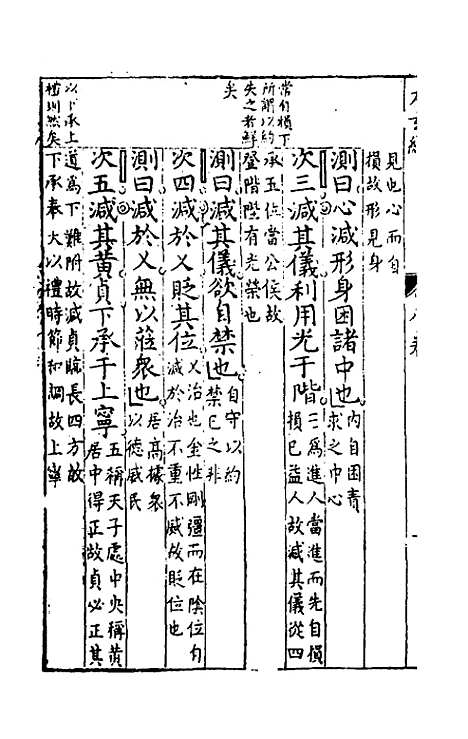 見也心而自
損故形見身
測曰心減形身困諸中也 內自困責
求之中心
次三減其儀利用光于階 三爲進人當進而先自損
損已益人故減其儀從四
常自損下
所謂以約
失之者鮮
矣
承五位當公侯故
登階陛有光榮也
測曰減其儀欲自禁也 自守以約
禁已之非
次四減於乂貶其位 乂治也金性剛彊而在陰位自
減於治不重不威故貶位也
測曰減於乂無以蒞衆也 居高據衆
以德威民
次五減其黃貞下承于上寧 五稱天子處中央稱黃
居中得正故貞必正其
以下承上
禮則然矣
道爲下難附故減貞長四方故
下承奉大以禮時節和調故上寧